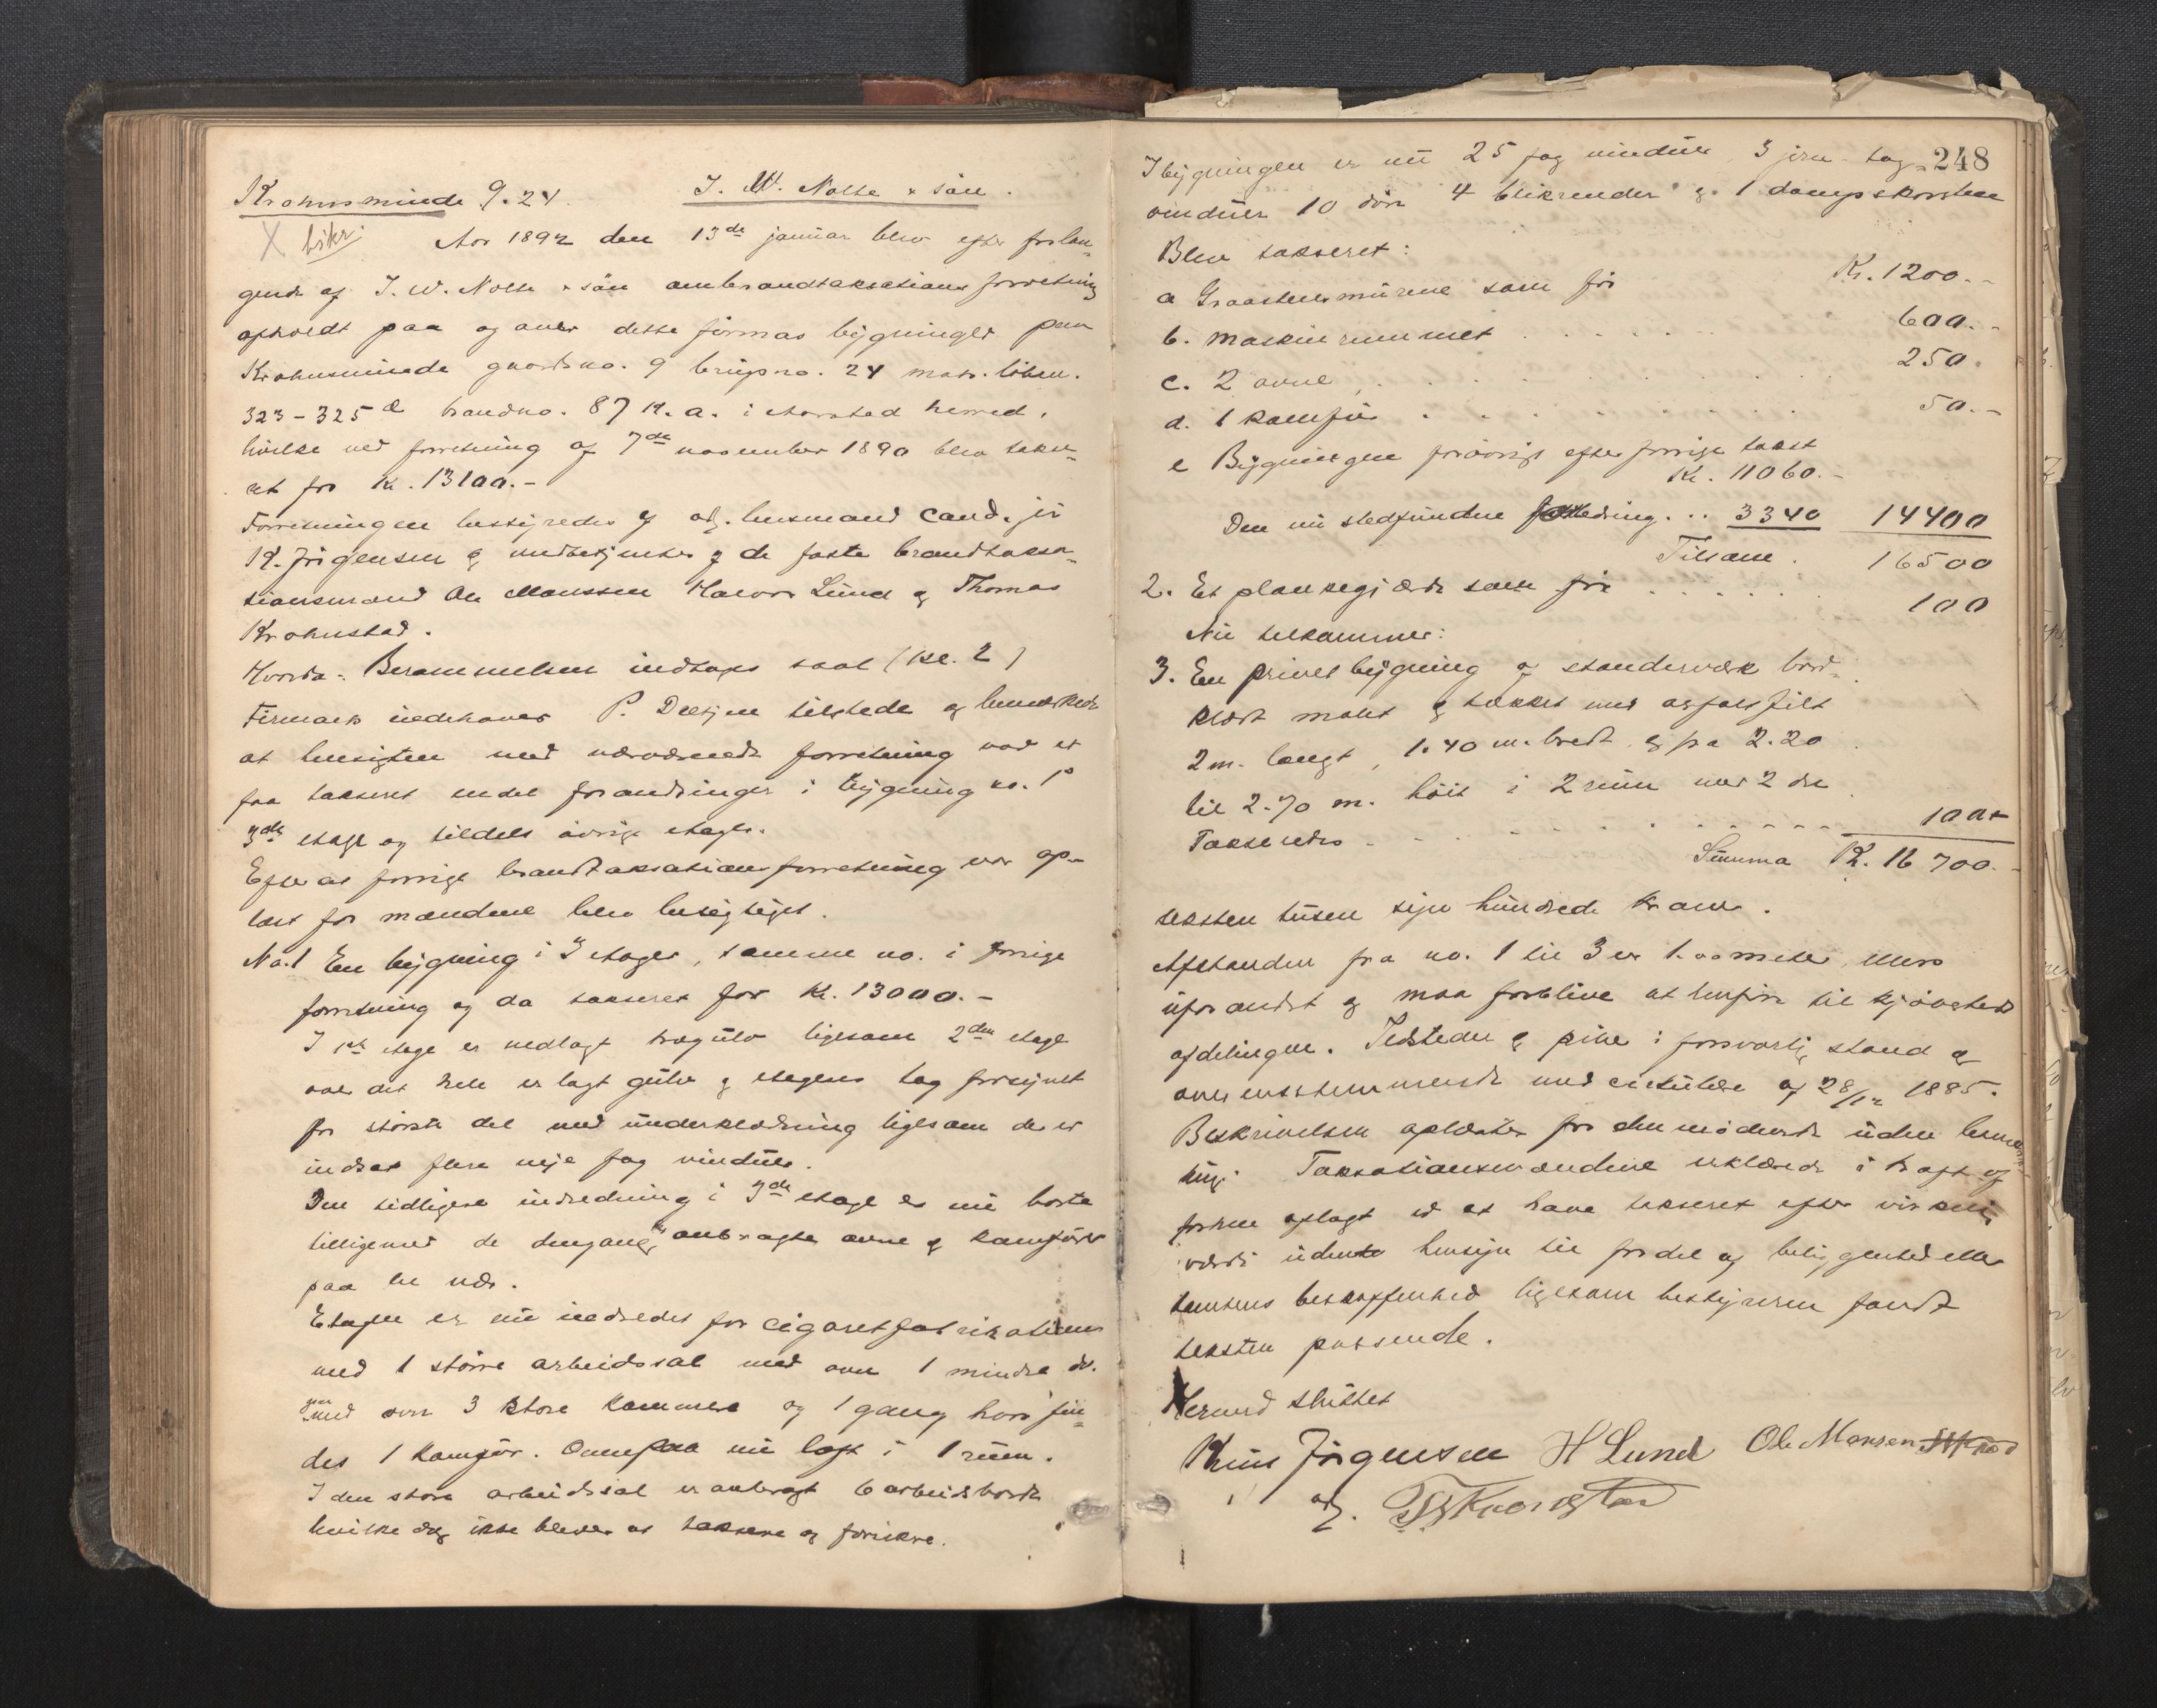 Krohnsminde 9.24. J. W. Nolte & sön.
X bskr.
Aar 1892 den 13de januar blev efter forlan-
gende af J. W. Nolte & sön ombrandtaksationsforretning
afholdt paa og over dette firmas bygninger paa
Krohnsminde gaardsno. 9 brugsno. 24 matr. löben.
323-325 d brandno. 87 K. a. i Aarstad herred,
hvilke ved forretning af 7de november 1890 blev takse-
ret for Kr. 13100.-
Forretningen bestyredes af adj. lensmand Cand. jur
K. Jörgensen og medbetjentes af de faste brandtaksa-
tionsmænd Ole Monssen Halvor Lund og Thomas
Krohnstad.
Hvorda: Berammelsen indtages saal (Kr. 2)
Firmaets indehaver P. Deetjen tilstede og bemerkede
at hensigten med nærværende forretning var at
faa takseret endel forandringer i bygning no. 1
3de etage og tildels övrige etager.
Efter at forrige brandtaksationsforretning var op-
læst for mændene blev besigtiget.
No. 1 En bygning i 3 etager, samme no. i forrige
forretning og da takseret for Kr. 13000.-
I 1ste etage er nedlagt trægulv ligesom 2den etage
over det hele er lagt gulv og etagens tag forsynet
for störste del med underklædning ligesom der er
indsat flere nye fag vinduer.
Den tidligere indredning i 3de etage er nu borte
tilligemed de dengang der anbragte ovne og komfürer
paa en nær.
Etagen er nu indredet for cigaretfabrikation
med 1 större arbeidssal med ovn 1 mindre do.
med ovn 3 store kammere og 1 gang hvori fin-
des 1 komfür. Ovenpaa nu loft i 1 rum.
I den store arbeidssal er anbragt 6 arbeidsborde
hvilke dog ikke bliver at taksere og forsikre.
248
I bygningen er nu 25 fag vinduer 3 jern tag-
vinduer 10 döre 4 blikrender og 1 dampskorsten
Blev takseret:
a Graastensmurene som för Kr. 1200.-
b. maskinrummet . . . . 600.-
c. 2 ovne . . . . . . 250.
d. 1 komfür . . . . . . 50.-
e Bygningen forövrigt efter forrige takst
Kr. 11060.-
Den nu stedfundne forbedring. . . 3340 14400
Tilsam. 16500
2. Et plankegjærde som för . . . . . . 100
Nu tilkommer:
3. En privetbygning af standerværk bord-
klædt malt og tækket med asfaltfilt
2 m. langt, 1.40 m. bredt og fra 2.20
til 2.70 m. höit i 2 rum med 2 döre
Takseredes . . . . . . . . 100.-
Summa Kr. 16700.-
seksten tusen syv hundrede kroner.
Afstanden fra no. 1 til 3 er 1.00 meter, ellers
uforandret og maa forblive at henföre til kjöbsteds
afdelingen. Ildsteder og piber i forsvarlig stand og
overensstemmende med cirkulære af 28/12 1885.
Beskrivelsen oplæstes for de mödende uden bemærk-
ning. Taksationsmændene erklærede i kraft af
forhen aflagt ed at have takseret efter virkelig
værdi uden hensyn til fordel af beliggenhed eller
tomtens beskaffenhed ligesom bestyreren fandt
taksten passende.
Hermed sluttet
Knut Jörgensen H Lund Ole Monsen
adj. Th Krohnstad